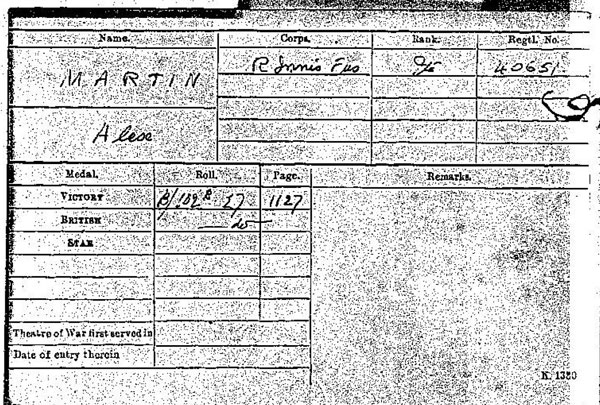 Name. Corps. Rank. Regtl. No.
MARTIN R Innis Fus 40651
Alex
Medal. Roll. Page. Remarks.
VICTORY B/109 B 27 1127
BRITISH — do —
STAR
Theatre of War first served in
Date of entry therein
K. 1380